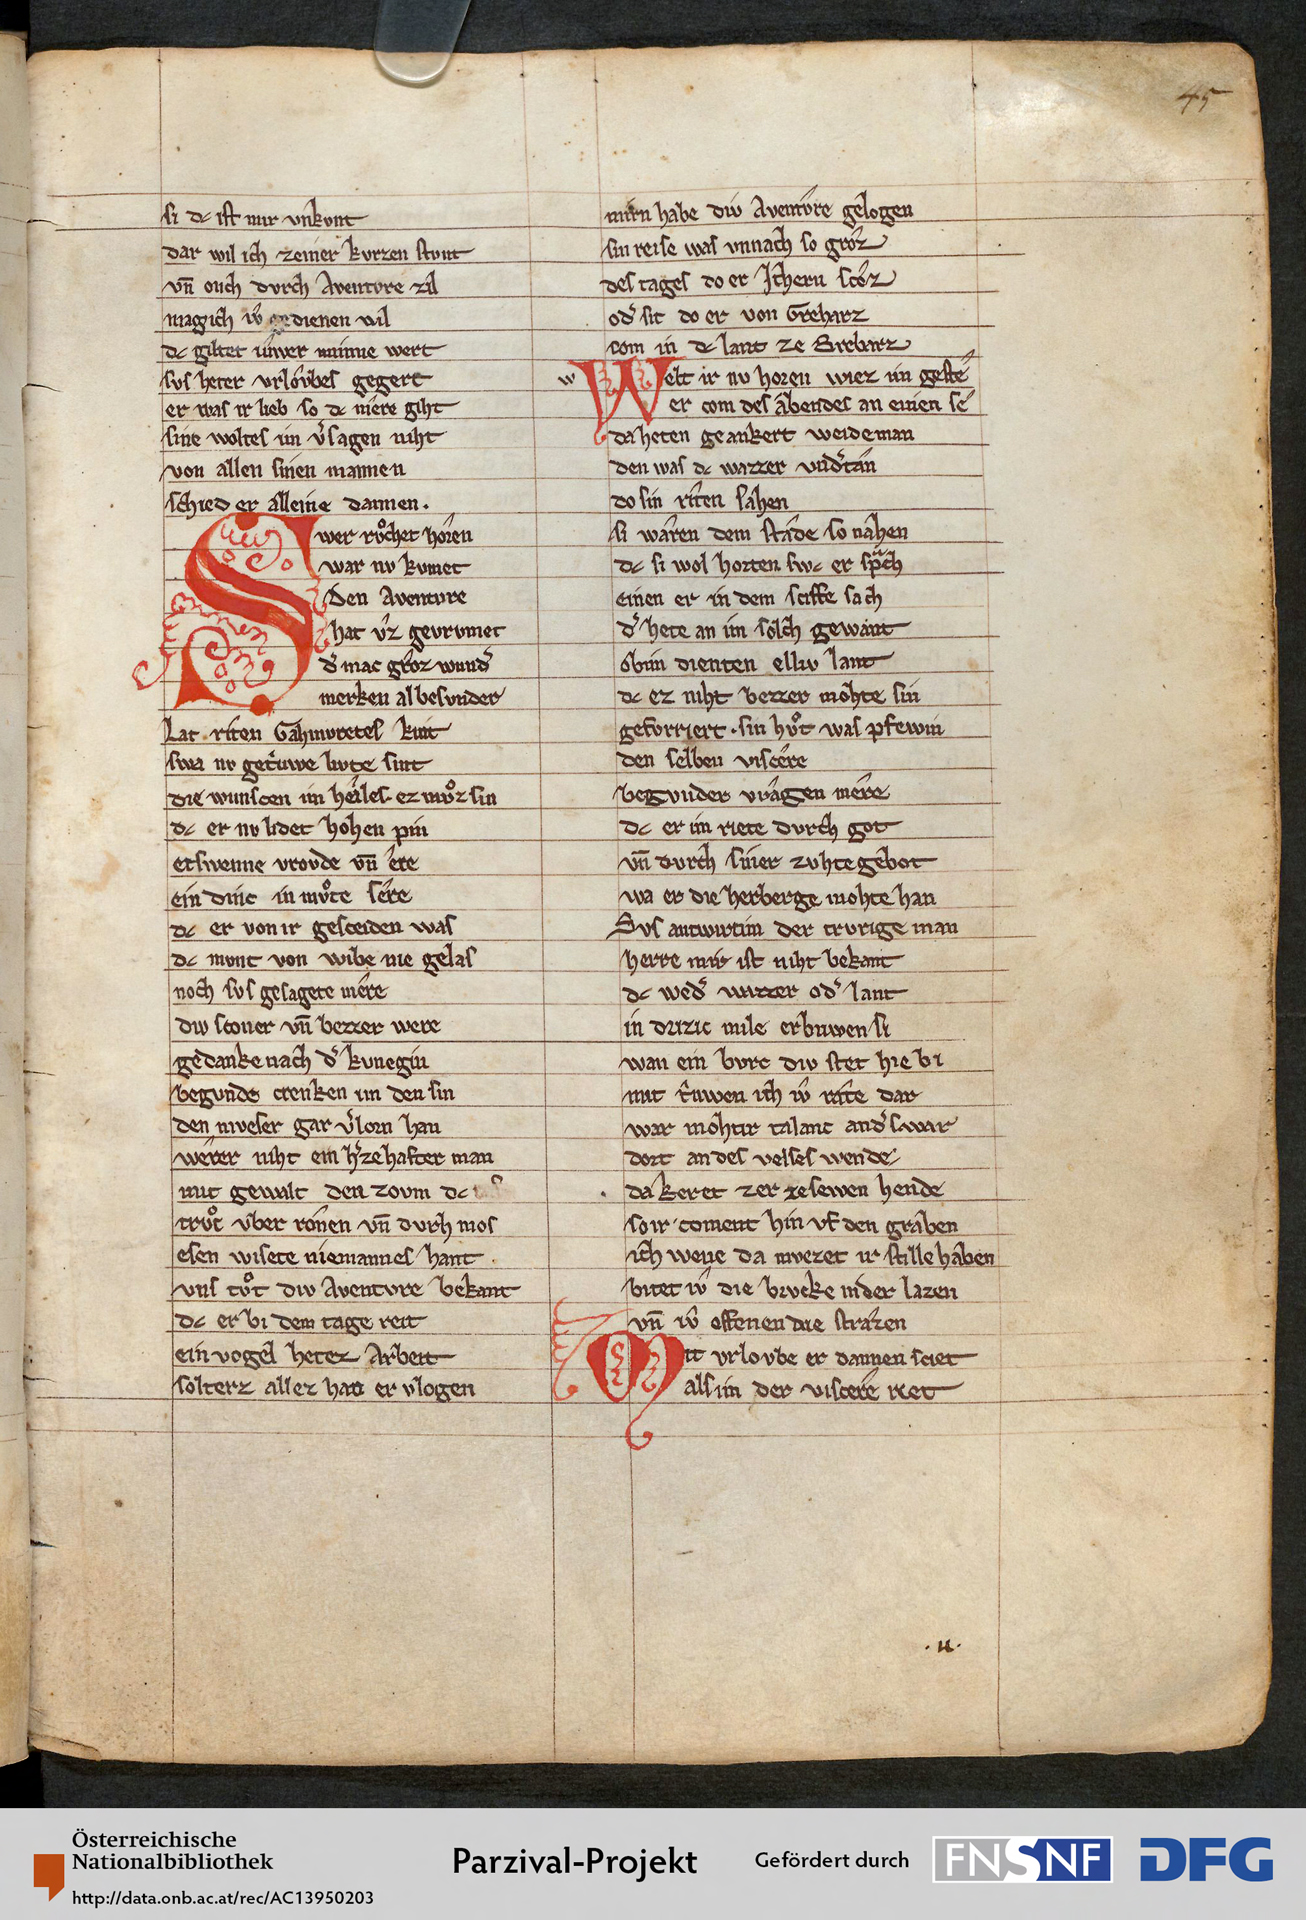 45
si dc ist mir vnkvnt
dar wil ich zeiner kvrzen stvnt
vn̄ ouch dvrch Aventvre zil
mag ich iv̂ gedienen vil
dc giltet iwer minne wert
svs heter vrlôvbes gegert
er was ir lieb so dc mêre giht
sine woltes im v̾sagen niht
von allen sinen mannen
schied er alleine dannen.
Swer rv̊chet hôren
war nv kvmet
Den Aventvre
hat v̂z gevrvmet
d̾ mac grôz wund̾
merken al besvnder
Lat rîten Gahmvretes kint
swa nv getriwe livte sint
die wunscen im heiles. ez mv̊z sin
dc er nv lidet hohen pin
etswenne vrovde vn̄ êre
ein dinc in mv̊te sêre
dc er von ir gesceiden was
dc mvnt von wibe nie gelas
noch svs gesagete mêre
div scôner vn̄ bezzer were
gedanke nach d̾ kvnegin
begvnde crenken im den sin
den mveser gar v̾lorn han
wêrer niht ein h̾zehafter man
mit gewalt den zovm dc
trv̊c vber rônen vn̄ dvrh mos
wan wisete niemannes hant
vns tv̊t div Aventvre bekant
dc er bi dem tage reit
ein vogel hetez Arbeit
solterz allez han er vlogen
mirn habe div Aventv̂re gelogen
sin reise was vnnâch so grôz
des tages do er Jthern scôz
od̾ sit do er von Grêharz
com in dc lant ze Brobarz
w
Welt ir nv hôren wiez im gestê
er com des âbendes an einen sê
da heten geankert weideman
den was dc wazzer vnd̾tân
do sin rîten sâhen
si wâren dem stâde so nâhen
dc si wol horten swc er sprach
einen er in dem sciffe sach
d̾ hete an im sôlch gewant
ob im dienten elliv lant
dc ez niht bezzer môhte sin
gefvrriert. sin hv̊t was pfewin
den selben viscêre
begvnder vrâgen mêre
dc er im riete dvrch got
vn̄ dvrch siner zvhte gebot
wa er die herberge mohte han
Svs antwurt im der trvrige man
herre mir ist niht bekant
dc wed̾ wazzer od̾ lant
in drizic mile erbuwen si
wan ein bvrc div stet hie bi
mit triwen ich iv̂ râte dar
war môht ir talanc and̾swar
dort an des velses wende
da keret zer zesewen hende
so ir coment hin vf den graben
ich wene da mvezet ir stille haben
bitet iv̂ die brvcke nider lazen
vn̄ iv̂ offenen die strâzen
Mit vrlovbe er dannen sciet
als im der viscêre riet
.u.
Österreichische
Nationalbibliothek
http://data.onb.ac.at/rec/AC13950203
Parzival-Projekt
Gefördert durch
FNSNF
DFG